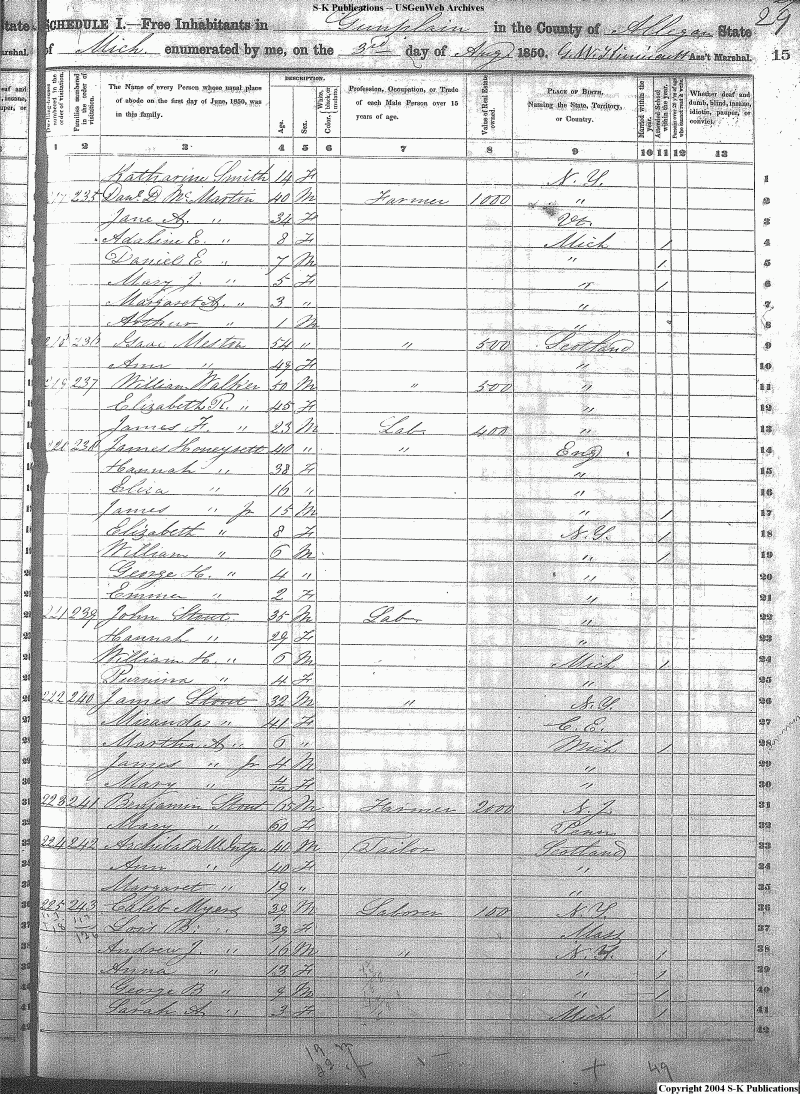 S-K Publications – USGenWeb Archives
SCHEDULE I.—Free Inhabitants in Gunplain in the County of Allegan State 29
of Mich enumerated by me, on the 3rd day of Augt 1850. Ass't Marshal. 15
State
arshal.
DESCRIPTION.
Dwelling-houses numbered in the order of visitation.
Families numbered in the order of visitation.
The Name of every Person whose usual place of abode on the first day of June, 1850, was in this family.
Age.
Sex.
White, black, or mulatto.
Color,
Profession, Occupation, or Trade of each Male Person over 15 years of age.
Value of Real Estate owned.
PLACE OF BIRTH.
Naming the State, Territory, or Country.
Married within the year.
Attended School within the year.
Persons over 20 y'rs of age who cannot read & write.
Whether deaf and dumb, blind, insane, idiotic, pauper, or convict.
1 2 3 4 5 6 7 8 9 10 11 12 13
Katharine Smith 14 F N. Y. 1
217 235 Danl. D McMartin 40 M Farmer 1000 " 2
Jane A. " 34 F Vt. 3
Adaline E. " 8 F Mich 1 4
Daniel E " 7 M " 1 5
Mary J. " 5 F " 1 6
Margaret A. " 3 " " 7
Arthur " 1 M " 8
218 236 Isaac Meston 54 " " 500 Scotland 9
Ann " 49 F " 10
219 237 William Walker 50 M " 500 " 11
Elizabeth R. " 45 F " 12
James F. " 23 M Lab. 400 " 13
220 238 James Honeysett 40 " " Eng 14
Hannah " 38 F " 15
Eliza " 16 " " 16
James " Jr 15 M " 1 17
Elizabeth " 8 F N. Y. 1 18
William " 6 M " 1 19
George H. " 4 " " 20
Emmer " 2 F " 21
221 239 John Stout 35 M Labor " 22
Hannah " 29 F " 23
William H. " 6 M Mich 1 24
Purnina " 4 F " 25
222 240 James Stout 32 M " N. Y. 26
Miranda " 41 F C. E. 27
Martha A. " 6 " Mich 1 28
James " Jr 4 M " 29
Mary " 4/12 F " 30
223 241 Benjamin Stout 65 M Farmer 2000 N. J. 31
Mary " 60 F Penn 32
224 242 40 M Tailor Scotland 33
Ann " 40 F " 34
Margaret " 19 " " 35
225 243 Caleb Myers 39 M Laborer 100 N. Y. 36
Lois B. " 39 F Mass 37
Andrew J. " 16 M " N. Y. 1 38
Anna " 13 F " 1 39
George B " 9 M " 1 40
Sarah A. " 3 F Mich 1 41
42
+ 49
Copyright 2004 S-K Publications